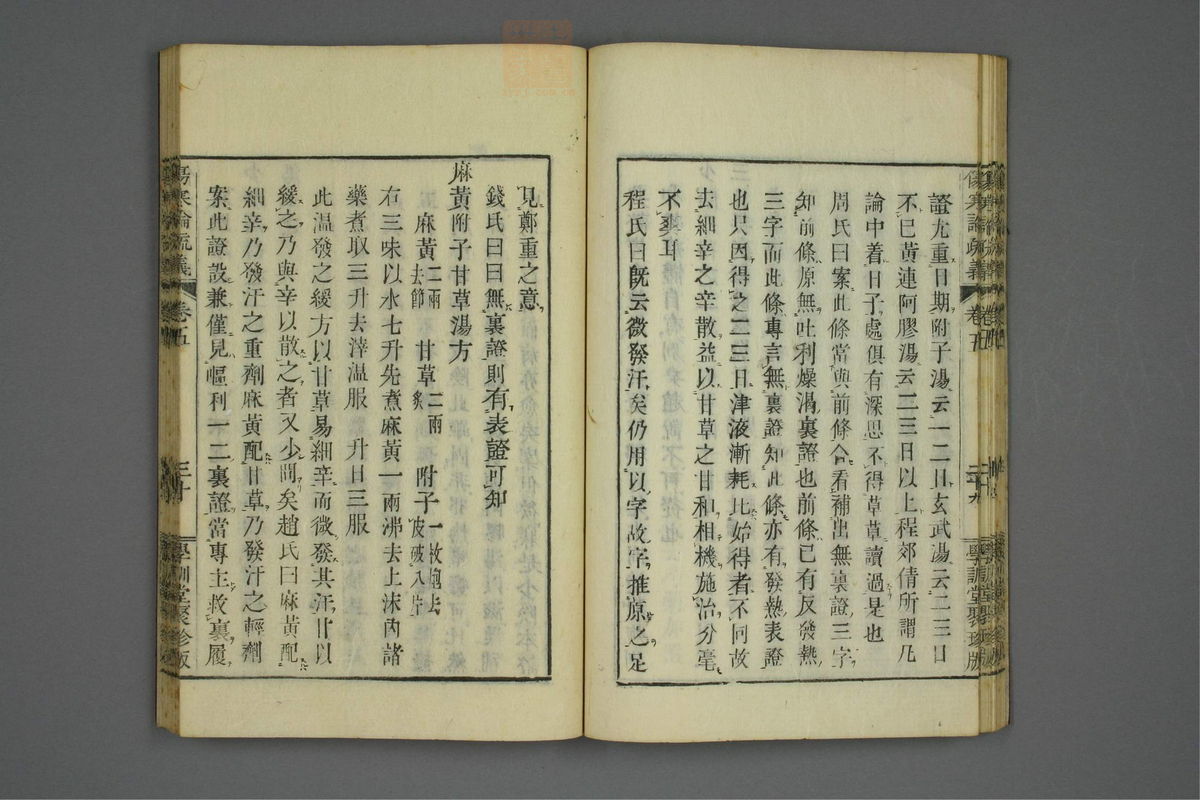 證尤重日期附子湯云一二日玄武湯云二三日
不已黃連阿膠湯云二三日以上程郊倩所謂凡
論中着日子處俱有深思不得草草讀過是也
周氏曰案此條當與前條合看補出無裏證三字
知前條原無吐利燥渴裏證也前條已有反發熱
三字而此條專言無裏證知此條亦有發熱表證
也只因得之二三日津液漸耗比始得者不同故
去細辛之辛散益以甘草之甘和相機施治分毫
不爽耳
程氏曰旣云微發汗矣仍用以字故字推原之足
傷寒論疏義
卷五
二十九
學訓堂聚珍版
見鄭重之意
錢氏曰曰無裏證則有表證可知
麻黃附子甘草湯方
麻黃二兩去節 甘草二兩炙 附子一枚炮去皮破八片
右三味以水七升先煮麻黃一兩沸去上沫內諸
藥煮取三升去滓溫服 升日三服
此溫發之緩方以甘草易細辛而微發其汗甘以
緩之乃與辛以散之者又少間矣趙氏曰麻黃配
細辛乃發汗之重劑麻黃配甘草乃發汗之輕劑
案此證設兼僅見嘔利一二裏證當專主救裏履
傷寒論疏義
卷五
三十
學訓堂聚珍版